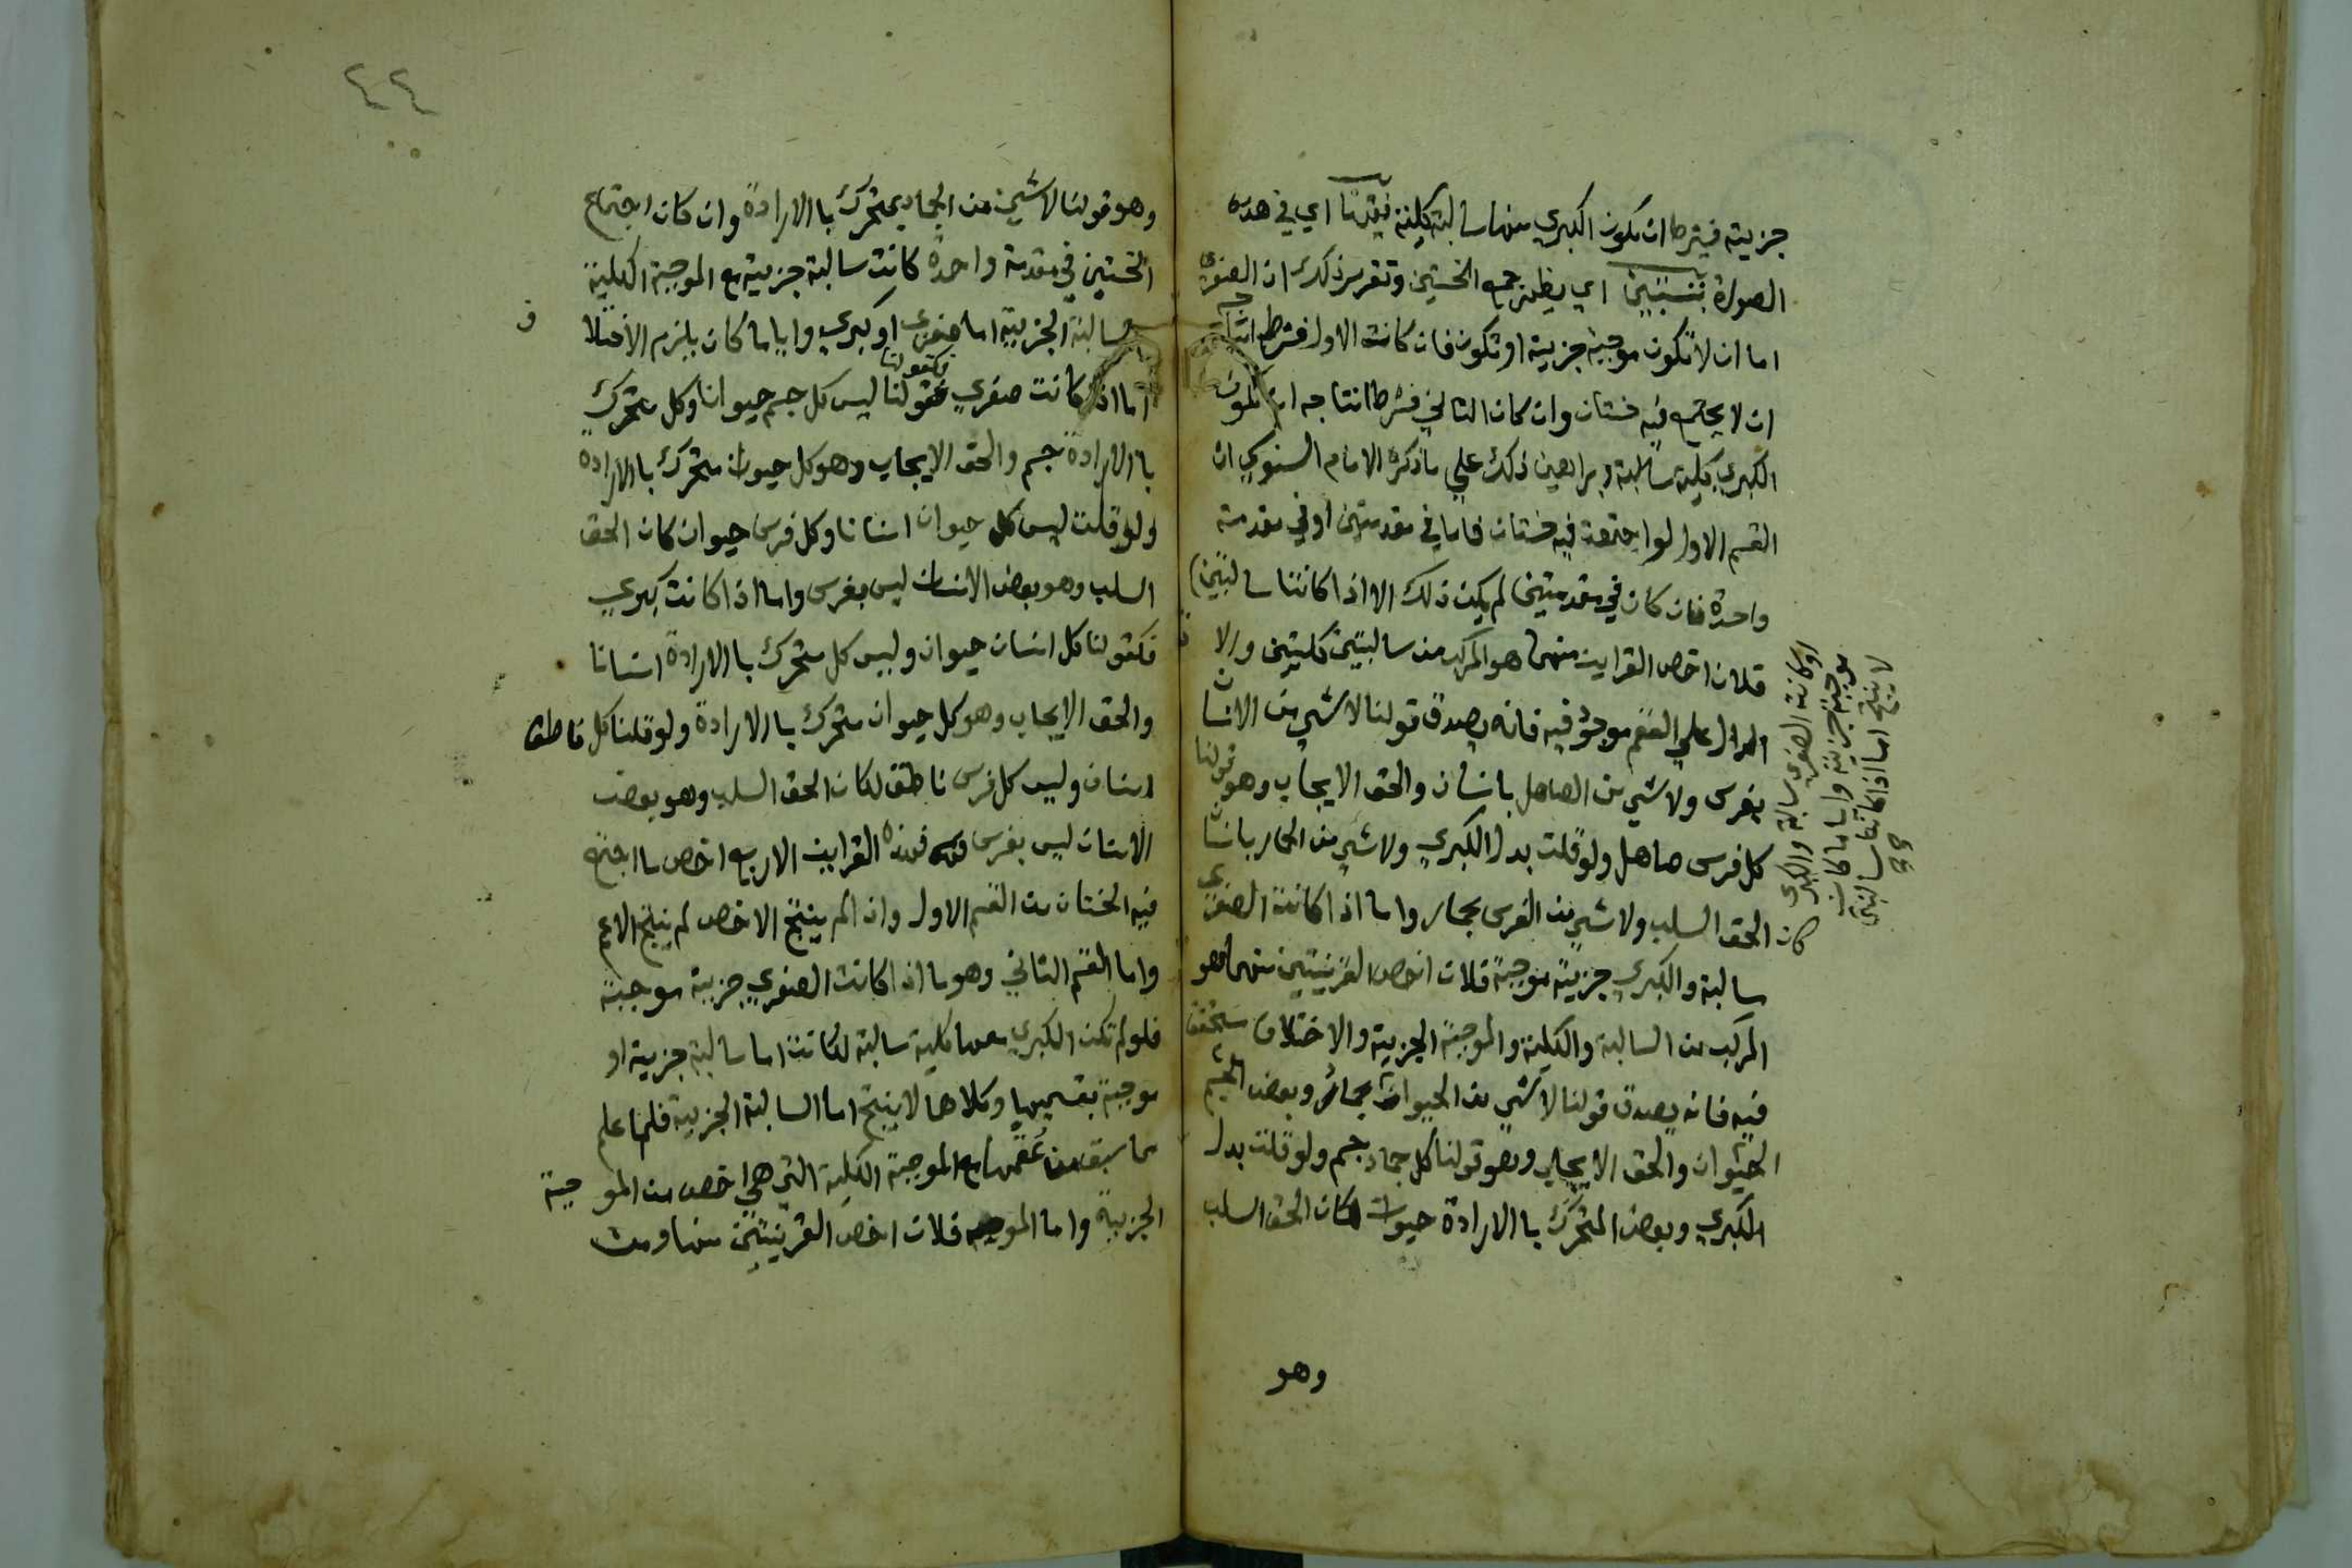 جزيية فيشترط ان تكون الكبري منها سالبة كلية فيقدنا اي في هده
الصورة بتنبيين اي يظهر جمع الخستين وتقرير ذلك ان الصغري
اما ان لا تكون موجبة جزيية او تكون فان كانت الاول فشرط انتاجه
ان لا يجتمع فيه خستان وان كان الثاني فشرط انتاجه ان تكون
الكبري كلية سالبة وبراهين ذلك علي ما ذكره الامام السنوسي ان
القسم الاول لو اجتمعت فيه خستان فاما في مقدمتين او في مقدمة
واحدة فان كان في مقدمتين لم يكن ذلك الا اذا كانتا سالبتين
فلان اخص القراين منهما هو المركب من سالبتين كليتين والا
الدال علي العقم موجود فيه فانه يصدق قولنا لا شي من الانسان
بفرس ولا شي من الصاهل بانسان والحق الايجاب وهو قولنا
كل فرس صاهل ولو قلت بدل الكبري ولا شي من الحمار بانسان
كان الحق السلب ولا شي من الفرس بحمار واما اذا كانت الصغري
سالبة والكبري جزيية موجبة فلان اخص القرينيتين منهما هو
المركب من السالبة والكلية والموجبة الجزيية والاختلاف متحقق
فيه فانه يصدق قولنا لا شي من الحيوان بجماد وبعض الجسم
الحيوان والحق الايجاب وهو قولنا كل جماد جسم ولو قلت بدل
الكبري وبعض المتحرك با الارادة حيوان لكان الحق السلب
وهو
او كانت الصغري سالبة والكبري
موجبة جزيية واياما كان
لا ينتج اما اذا كانتا سالبتين
٤٤
وهو قولنا لا شي من الجماد بمتحرك با الارادة وان كان اجتماع
الخستين في مقدمة واحدة كانت سالبة جزيية مع الموجبة الكلية
سالبة الجزيية اما صغري او كبري واياما كان يلزم الاختلا
ف
اما اذا كانت صغري فكقولنا ليس كل جسم حيوانا وكل متحرك
با الارادة جسم والحق الايجاب وهو كل حيوان متحرك با الارادة
ولو قلت ليس كل حيوان انسانا وكل فرس حيوان كان الحق
السلب وهو بعض الانسان ليس بفرس واما اذا كانت كبري
فكقولنا كل انسان حيوان وليس كل متحرك با الارادة انسانا
والحق الايجاب وهو كل حيوان متحرك با الارادة ولو قلنا كل ناطق
انسان وليس كل فرس ناطق لكان الحق السلب وهو بعض
الانسان ليس بفرس فهذه القراين الاربع اخص ما اجتمع
فيه الخستان من القسم الاول واذا لم ينتج الاخص لم ينتج الاعم
واما القسم الثاني وهو ما اذا كانت الصغري جزيية موجبة
فلو لم تكن الكبري معها كلية سالبة لكانت اما سالبة جزيية او
موجبة بقسميها وكلاهما لا ينتج اما السالبة الجزيية فلما علم
مما سبق من عقمها مع الموجبة الكلية التي هي اخص من الموجبة
الجزيية واما الموجبه فلان اخص القرينتين منها ومن